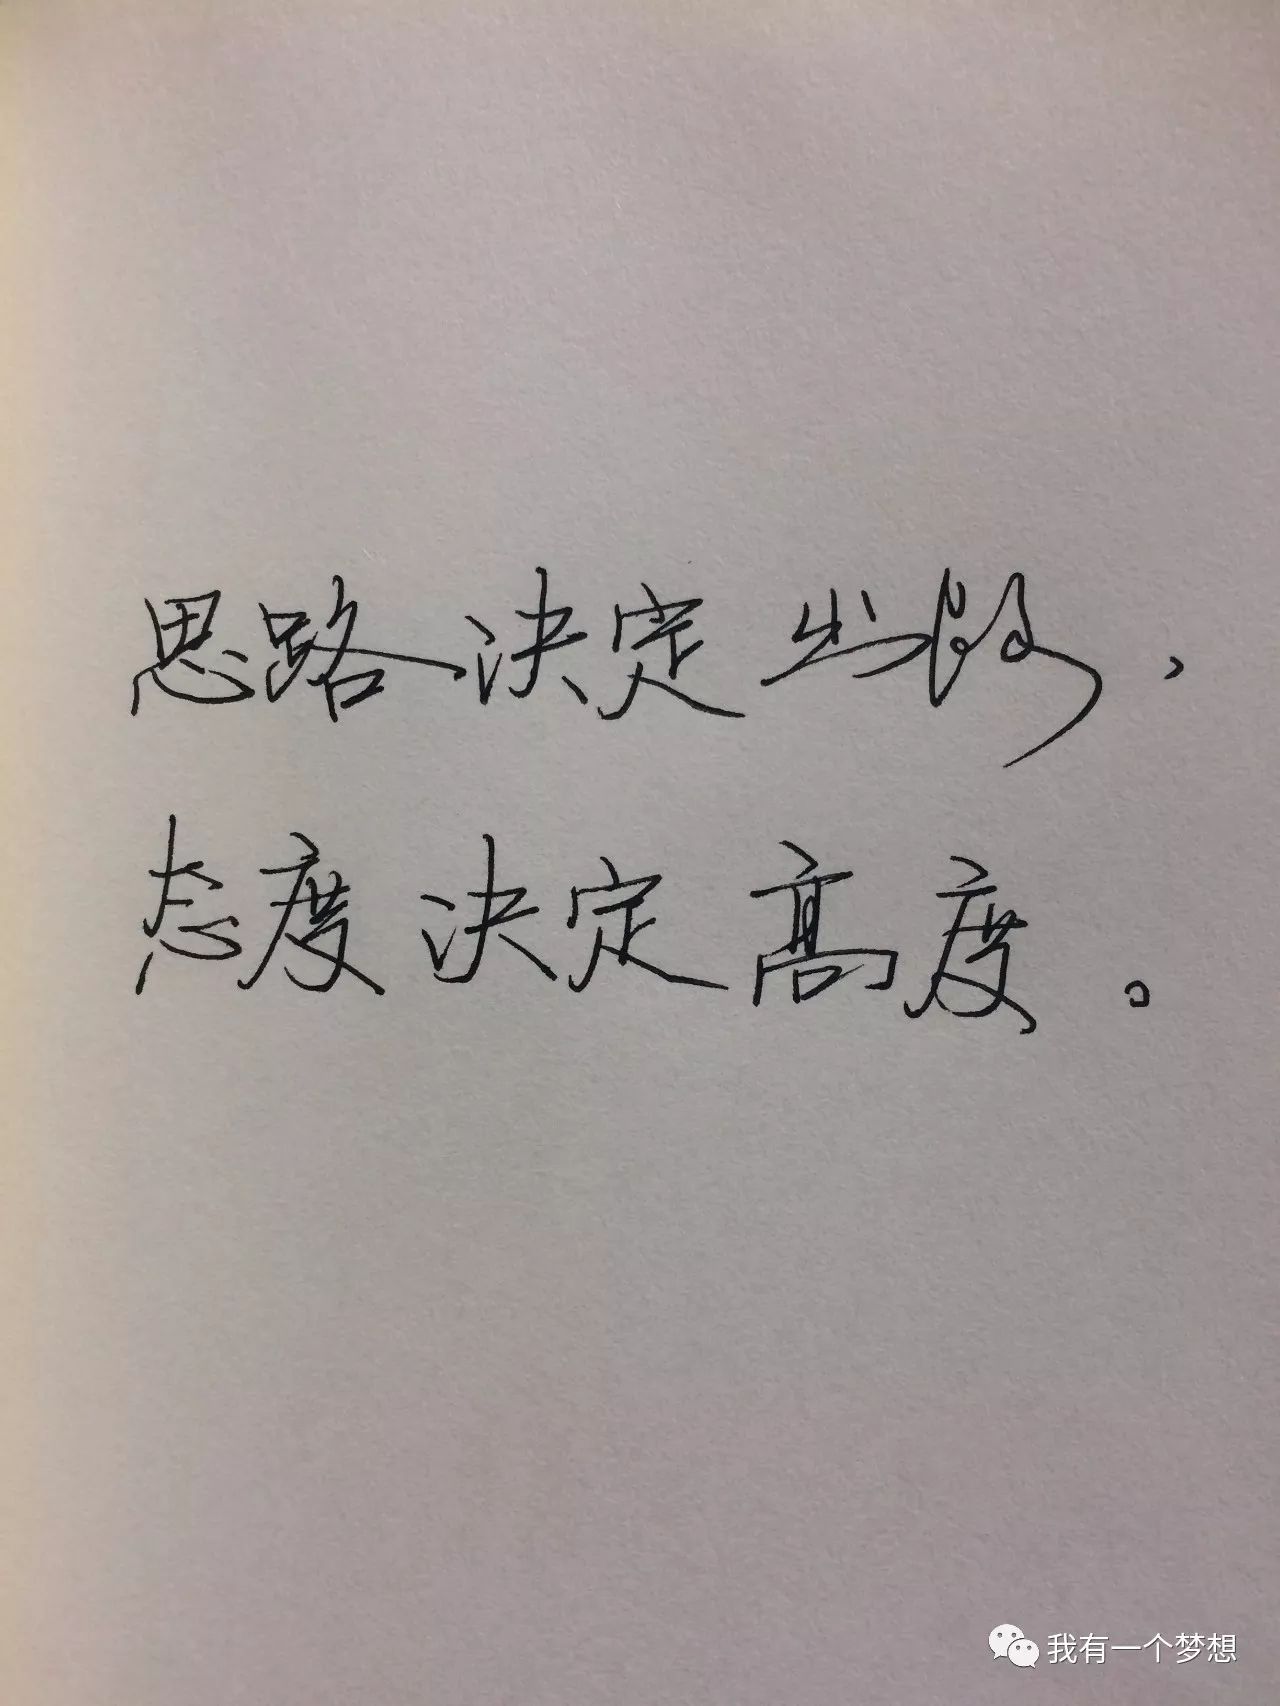 思路决定出路，
态度决定高度。
我有一个梦想